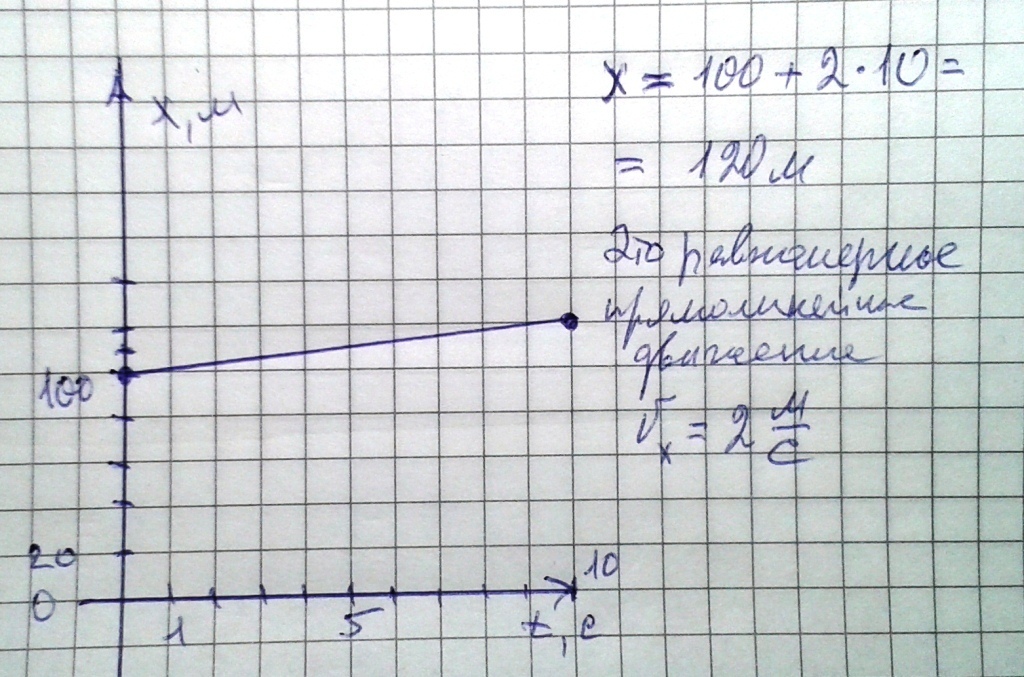 x, м
x = 100 + 2·10 =
= 120 м
Это равномерное
прямолинейное
движение
Vx = 2 м/с
100
20
0
1
5
10
t, с